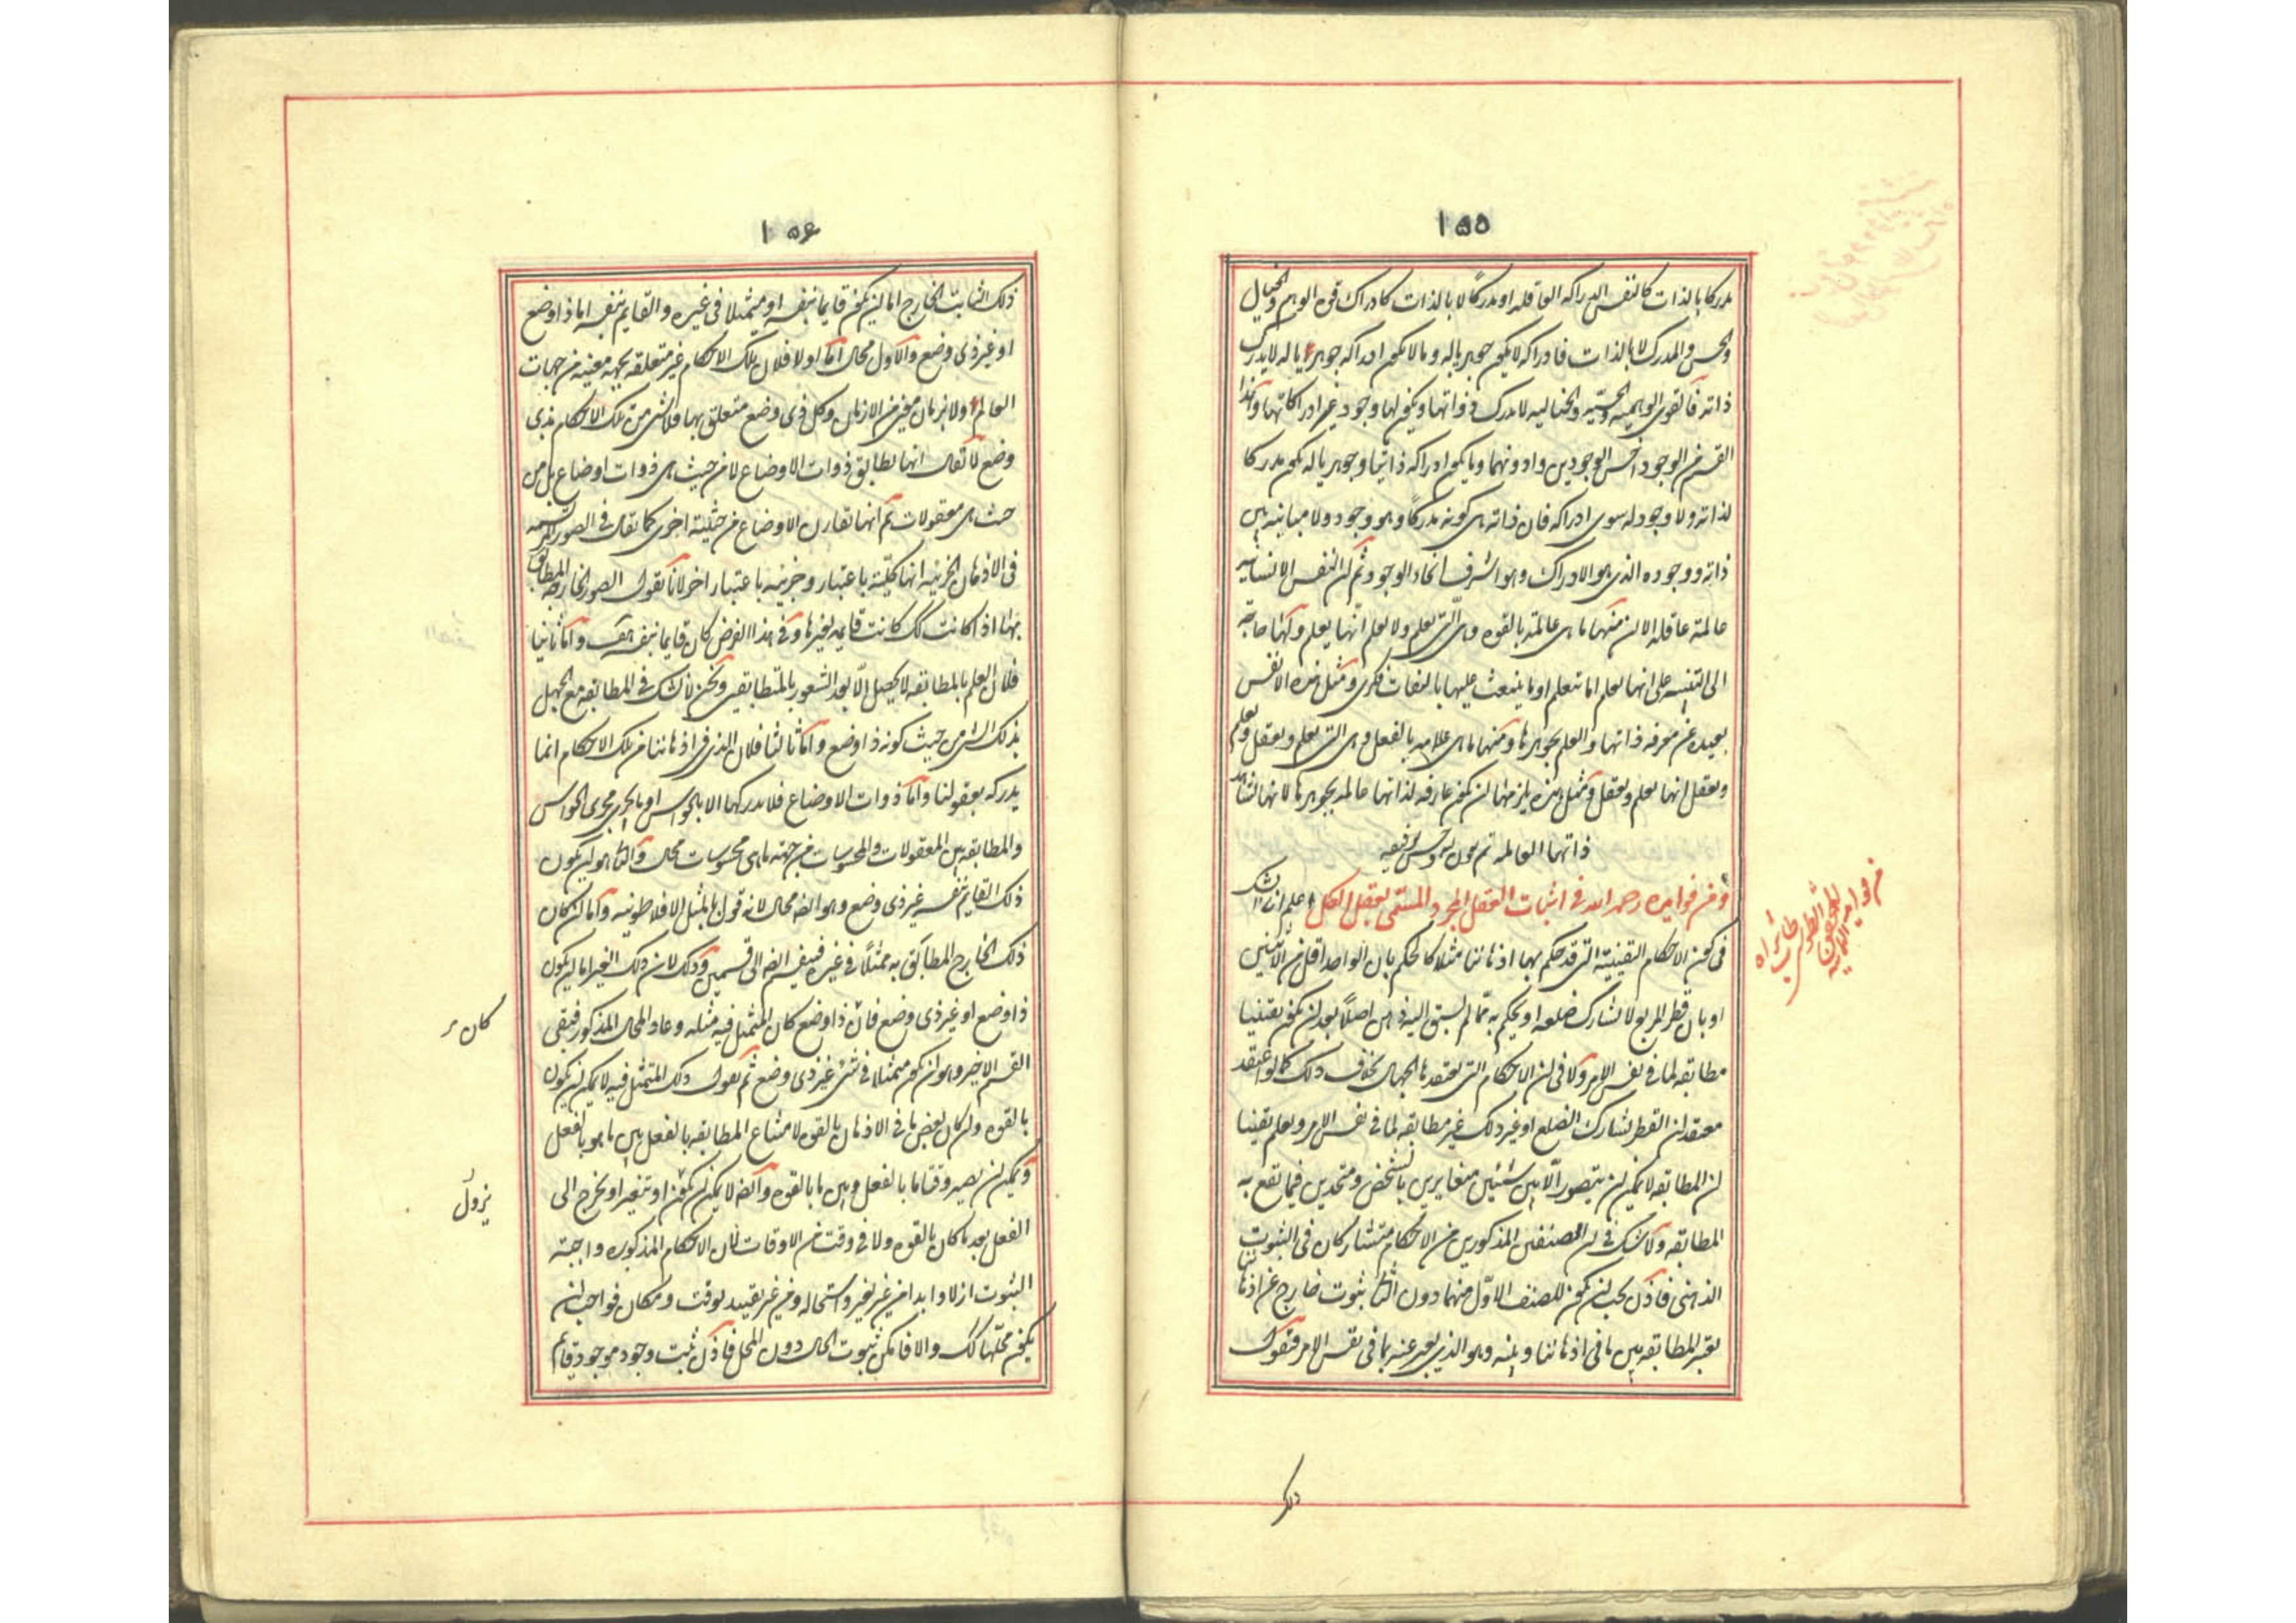 ١٥٥
مدركا بالذات كالنفس الدراكه العاقله او مدركًا لا بالذات كادراك قوى الوهم والخيال
والحس والمدرك لا بالذات فادراكه لا يكون جوهريا له وما لا يكون ادراكه جوهريا له لا يدرك
ذاته فالقوى الوهميه والحسّيه والخياليه لا تدرك ذواتها ويكون لها وجود غير ادراكاتها وهذا
القسم من الوجود اخسّ الوجودين وادونهما وما يكون ادراكه ذاتيا وجوهريا له يكون مدركا
لذاته ولا وجود له سوى ادراكه فان ذاته هى كونه مدركًا وهو وجود ولا مباينه بين
ذاته ووجوده الذى هو الادراك وهو اشرف انحاء الوجود ثم ان النفس الانسانيه
عالمة عاقله الا ان منها ما هى عالمة بالقوه وهى التى تعلم ولا تعلم انّها تعلم ولكنّها محتاجة
الى التنبيه على انها تعلم اما تتعلم او ما ينبعث عليها بالتفات فكرى ومثل هذه الانفس
بعيده عن معرفه ذاتها والعلم بجوهرها ومنها ما هى علامه بالفعل وهى التى تعلم وتعقل وتعلم
وتعقل انها تعلم وتعقل ومثل هذه يلزمها ان تكون عارفه لذاتها عالمه بجوهرها لانها تشاهد
ذاتها العالمه تم بعون الله وحسن توفيقه
ومن فوايده رحمه الله فى اثبات العقل المجرد المسمّى بعقل الكل اعلم انا لا نشك
فى كون الاحكام اليقينيّة التى قد حكم بها اذهاننا مثلا كالحكم بان الواحد اقل من الاثنين
او بان قطر المربع لا يشارك ضلعه او يحكم به ممّا لم يسبق اليه ذهن اصلًا بعد ان يكون يقينيا
مطابقه لما فى نفس الامر ولا فى ان الاحكام التى يعتقدها الجهال بخلاف ذلك كما لو اعتقد
معتقد ان القطر يشارك الضلع او غير ذلك غير مطابقه لما فى نفس الامر ونعلم يقينا
ان المطابقه لا يمكن ان يتصور الّا بين شيئين متغايرين بالتشخص ومتحدين فيما تقع به
المطابقه ولا نشك فى ان الصنفين المذكورين من الاحكام متشاركان فى الثبوت
الذهنى فاذن يجب ان يكون للصنف الاوّل منهما دون الثانى ثبوت خارج عن اذهاننا
تعتبر المطابقه بين ما فى اذهاننا وبينه وهو الذى يعبر عنه بما فى نفس الامر فنقول
من فوايد
المحقق الطوسى
طاب ثراه
ذلك
١٥٦
ذلك الثابت الخارج اما ان يكون قايما بنفسه او متمثلا فى غيره والقايم بنفسه اما ذا وضع
او غير ذى وضع والاول محال امّا اولا فلان تلك الاحكام غير متعلقه بجهة معينه من جهات
العالم ولا بزمان معين من الازمان وكل ذى وضع متعلق بها فلا شىء من تلك الاحكام بذى
وضع لا يقال انها تطابق ذوات الاوضاع لا من حيث هى ذوات اوضاع بل من
حيث هى معقولات ثم انها تقارن الاوضاع من حيثية اخرى كما يقال فى الصور المرتسمه
فى الاذهان الجزئيه انها كلّية باعتبار وجزئيه باعتبار اخر لانا نقول الصور الخارجه المطابق
بها اذا كانت كك كانت قايمه بغيرها وفى هذا الفرض كان قايما بنفسه هف وامّا ثانيا
فلان العلم بالمطابقه لا يحصل الّا بعد الشعور بالمتطابقين ونحن لا نشك فى المطابقه مع الجهل
بذلك الشى من حيث كونه ذا وضع وامّا ثالثا فلان الذى فى اذهاننا من تلك الاحكام انما
يدركه بعقولنا وامّا ذوات الاوضاع فلا ندركها الا بالحواس او بما يجرى مجرى الحواس
والمطابقه بين المعقولات والمحسوسات من جهة ما هى محسوسات محال والثانى هو ان يكون
ذلك القايم بنفسه غير ذى وضع وهو ايضه محال لانه قول بالمثل الافلاطونيه وامّا ان كان
ذلك الخارج المطابق به متمثلًا فى غيره فينقسم ايضه الى قسمين وذلك لان ذلك الغير اما ان يكون
ذا وضع او غير ذى وضع فان ذا وضع كان المتمثل فيه مثله وعاد المحال المذكور فبقى
القسم الاخير وهو ان يكون متمثلا فى شئ غير ذى وضع ثم نقول ذلك المتمثل فيه لا يمكن ان يكون
بالقوه وان كان بعض ما فى الاذهان بالقوه لامتناع المطابقه بالفعل بين ما هو بالفعل
ويمكن ان يصير وقتا ما بالفعل وبين ما بالقوه وايضه لا يمكن ان يكون او يتغير او يخرج الى
الفعل بعد ما كان بالقوه ولا فى وقت من الاوقات لان الاحكام المذكوره واجبة
الثبوت ازلا وابدا من غير تغير واستحاله ومن غير تقييد بوقت ومكان فواجب ان
يكون محلّها كك والا فامكن ثبوت الحال دون المحل فاذن ثبت وجود موجود قايم
كان
يزول